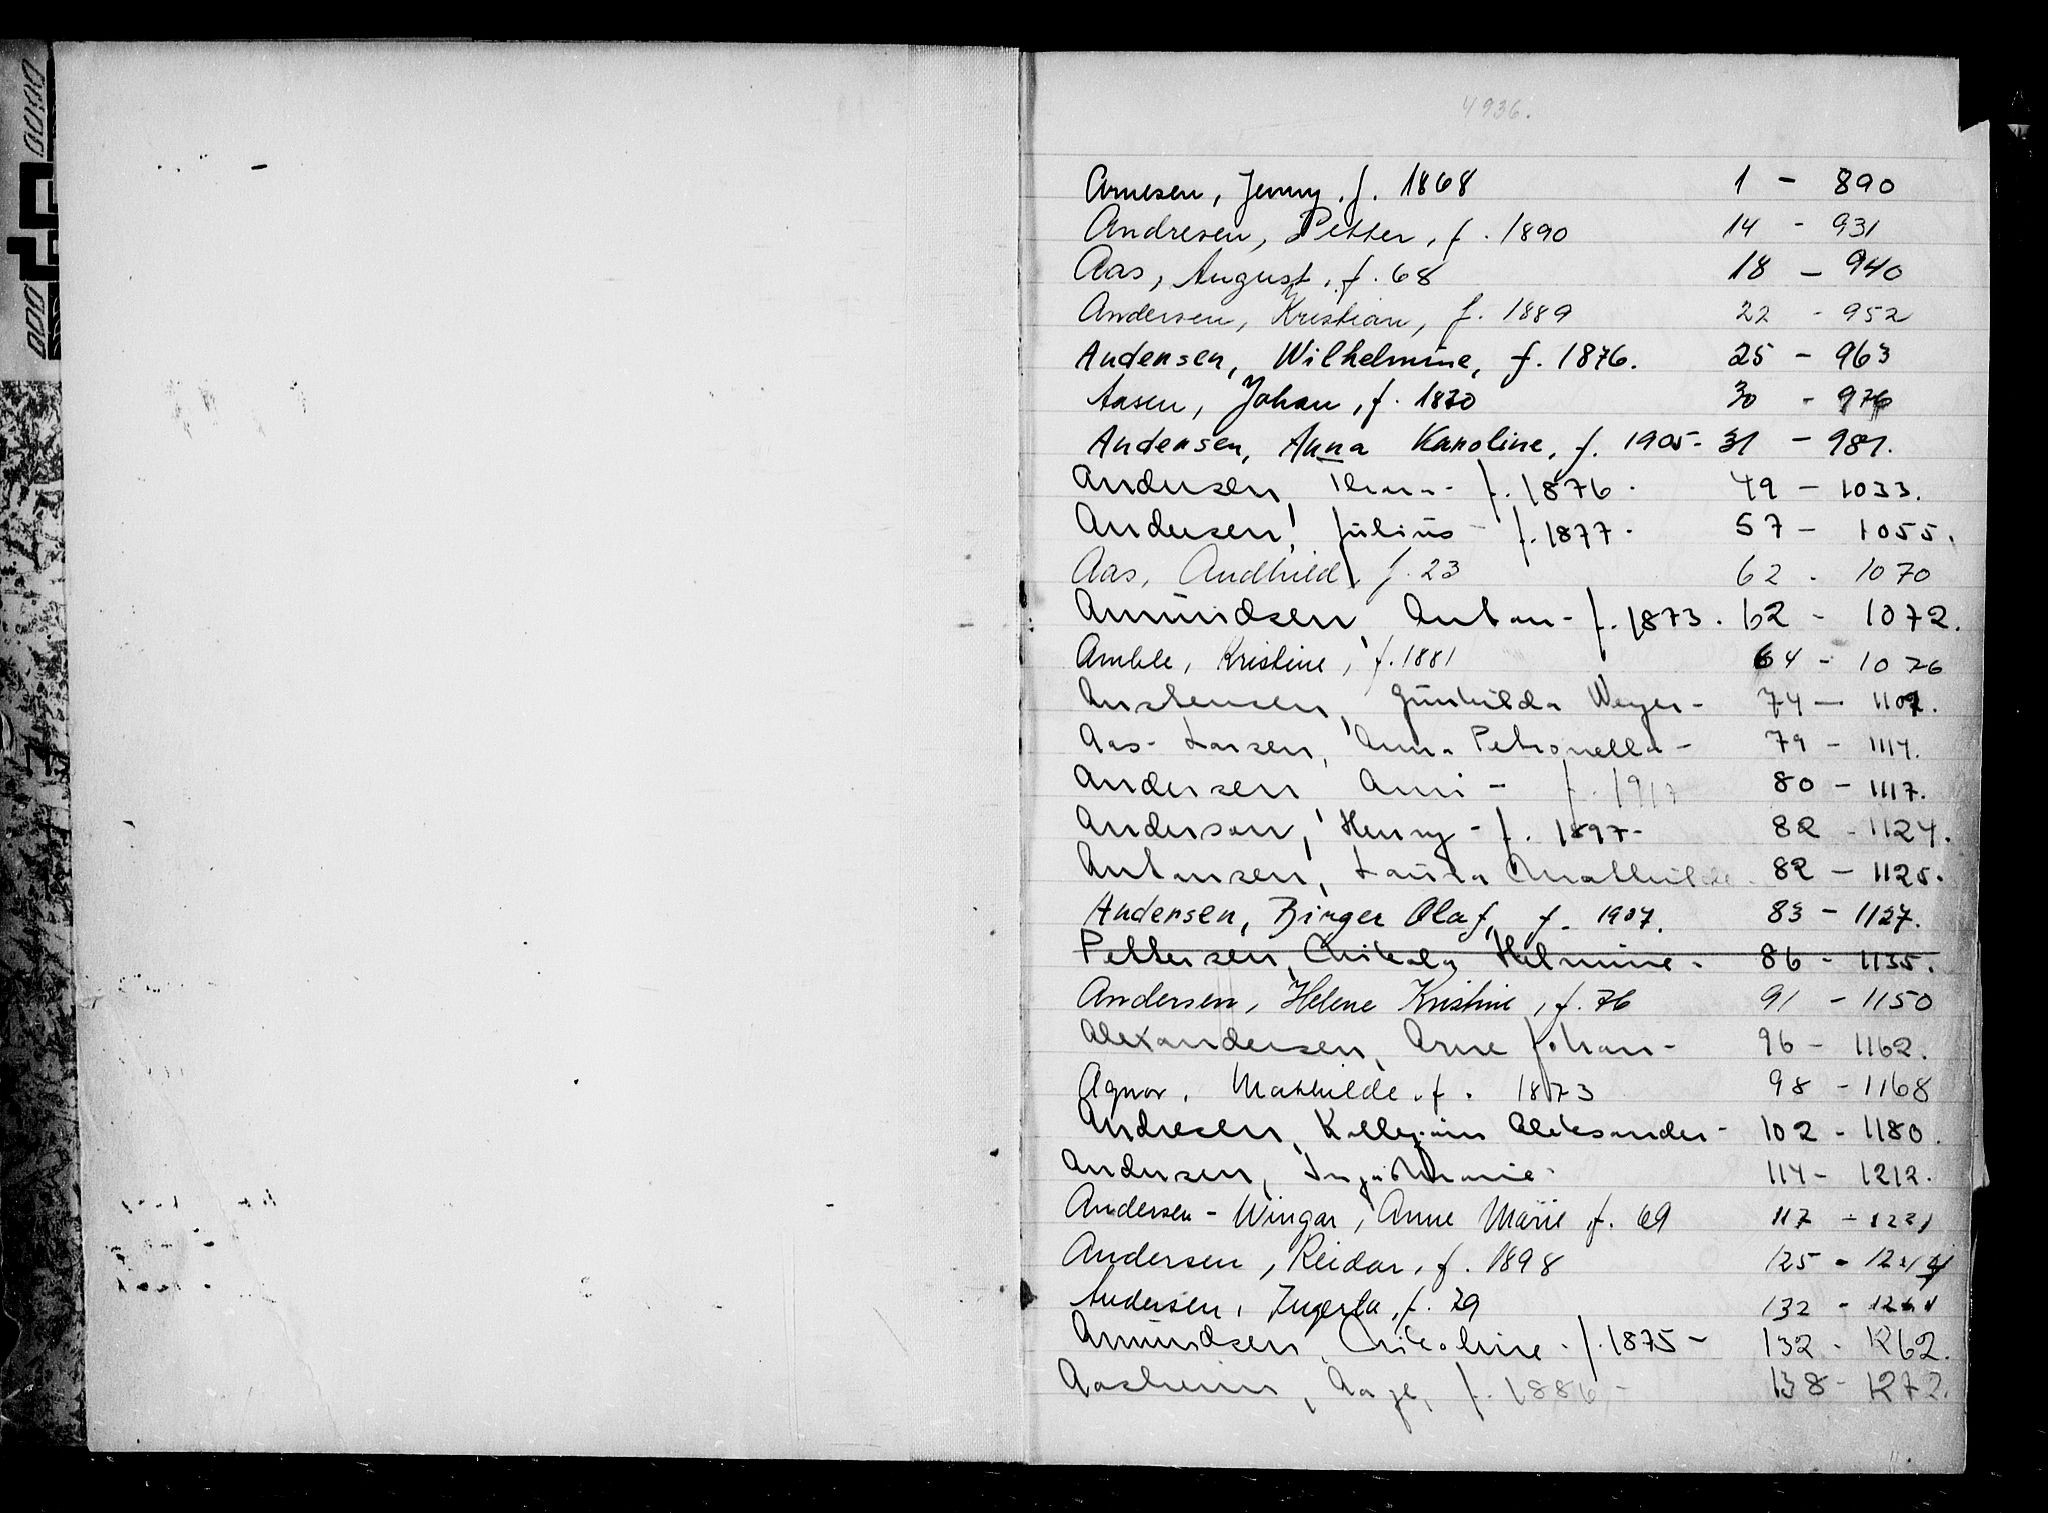 4936.
Arnesen, Jenny, f. 1868 1 - 890
Andresen, Petter, f. 1890 14 - 931
Aas, August, f. 68 18 - 940
Andersen, Kristian, f. 1889 22 - 952
Andersen, Wilhelmine, f. 1876. 25 - 963
Aasen, Johan, f. 1870 30 - 976
Andersen, Anna Karoline, f. 1905 - 31 - 981.
Andersen, Thora - f. 1876. 49 - 1033.
Andersen, Julius - f. 1877. 57 - 1055.
Aas, Andhild, f. 23 62 - 1070
Amundsen, Anton - f. 1873. 62 - 1072.
Amble, Kristine, f. 1881 64 - 1076
Anstensen, Gunhilda Meyer - 74 - 1102.
Aas-Larsen, Anna Petronella - 79 - 1114.
Andersen Anni - f. 1917 80 - 1117.
Anderson, Henry - f. 1897 - 82 - 1124.
Antonsen, Laura Mathilde. 82 - 1125.
Andersen, Birger Olaf, f. 1907. 83 - 1127.
Pettersen, Helmine. 86 - 1135.
Andersen, Helene Kristine, f. 76 91 - 1150
Alexandersen, Arne Johan - 96 - 1162.
Agnor, Mathilde. f. 1873 98 - 1168
Andresen, Aleksander - 102 - 1180.
Andersen, Inga Marie - 114 - 1212.
Andersen - Wingar, Anne Marie f. 69 117 - 1221
Andersen, Reidar, f. 1898 125 - 1244
Andersen, Ingerta, f. 79 132 - 1261
Amundsen, Nikoline - f. 1875 - 132 - 1262.
Aasheim, Aage, f. 1886, - 138 - 1272.